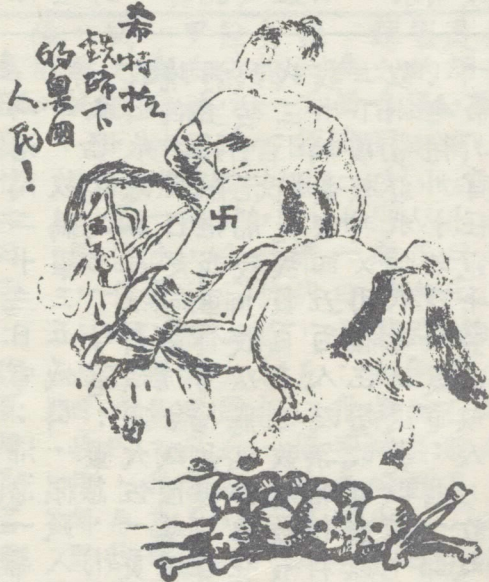 希特拉
鉄蹄下
的奧國
人民！